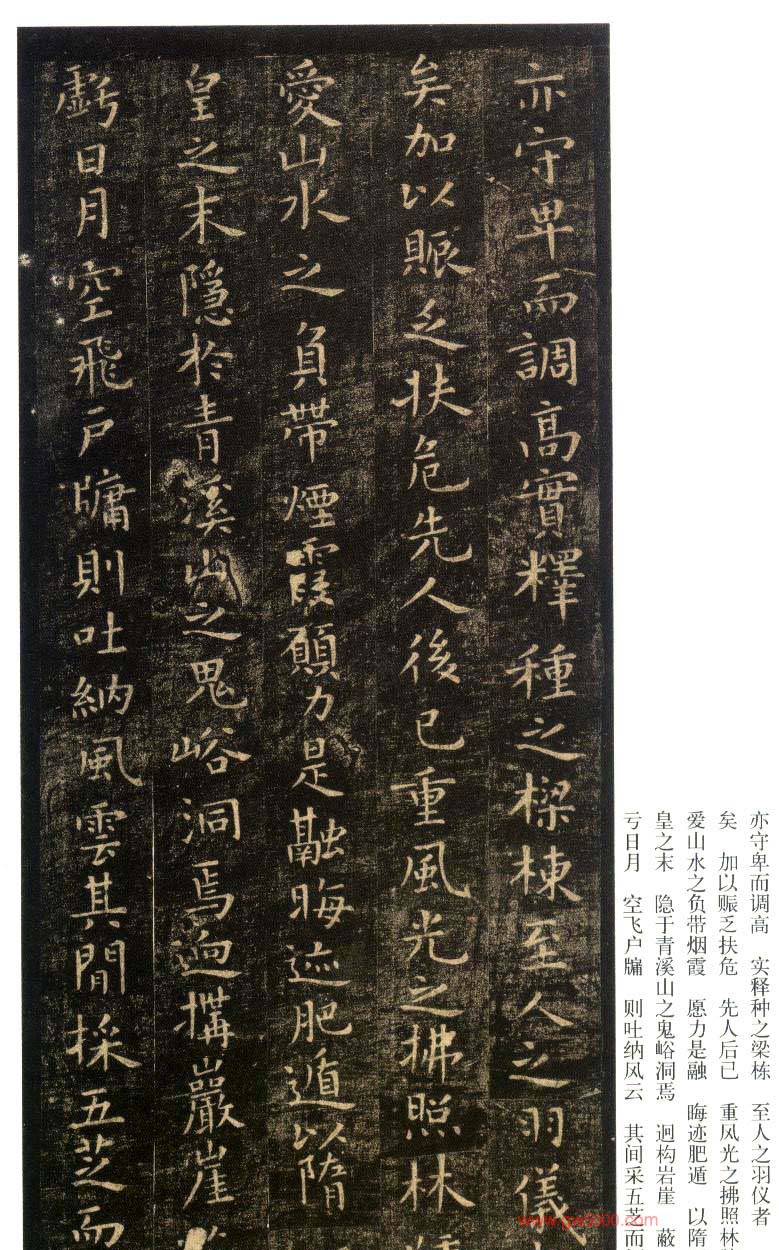 亦守卑而調高實釋種之樑棟至人之羽儀
矣加以賑乏扶危先人後已重風光之拂照林
愛山水之負帶煙霞願力是融晦迹肥遁以隋
皇之末隱於青溪山之鬼峪洞焉迥搆巖崖
虧日月空飛戶牖則吐納風雲其間採五芝而
亦守卑而调高　实释种之梁栋　至人之羽仪者
矣　加以赈乏扶危　先人后已　重风光之拂照林
爱山水之负带烟霞　愿力是融　晦迹肥遁　以隋
皇之末　隐于青溪山之鬼峪洞焉　迥构岩崖　蔽
亏日月　空飞户牖　则吐纳风云　其间采五芝而
www.gw5000.com